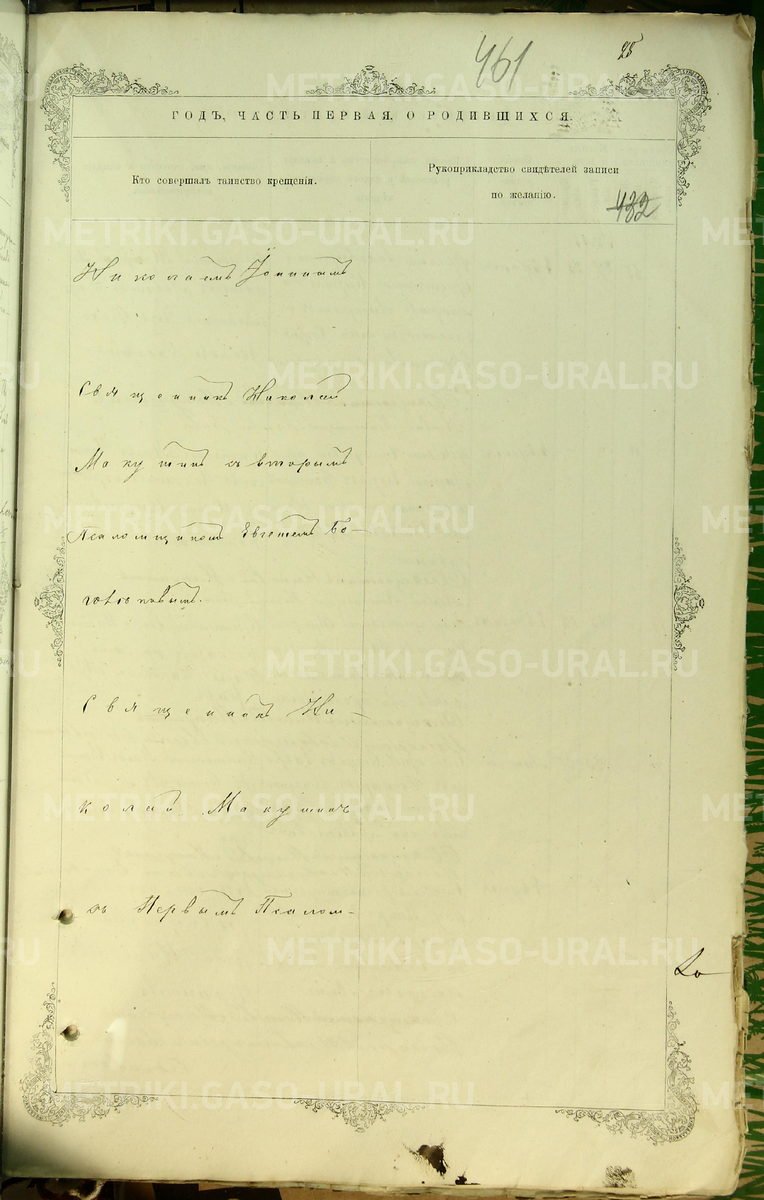 461
25
ГОДЪ, ЧАСТЬ ПЕРВАЯ, О РОДИВШИХСЯ.
Кто совершалъ таинство крещенія.
Рукоприкладство свидѣтелей записи
по желанію.
432
METRIKI.GASO-URAL.RU
Николаемъ
Священникъ Николай
Макушинъ съ вторымъ
Псаломщикомъ Евгеніемъ Бо-
Священникъ Ни-
колай Макушинъ
съ Первымъ Псалом-